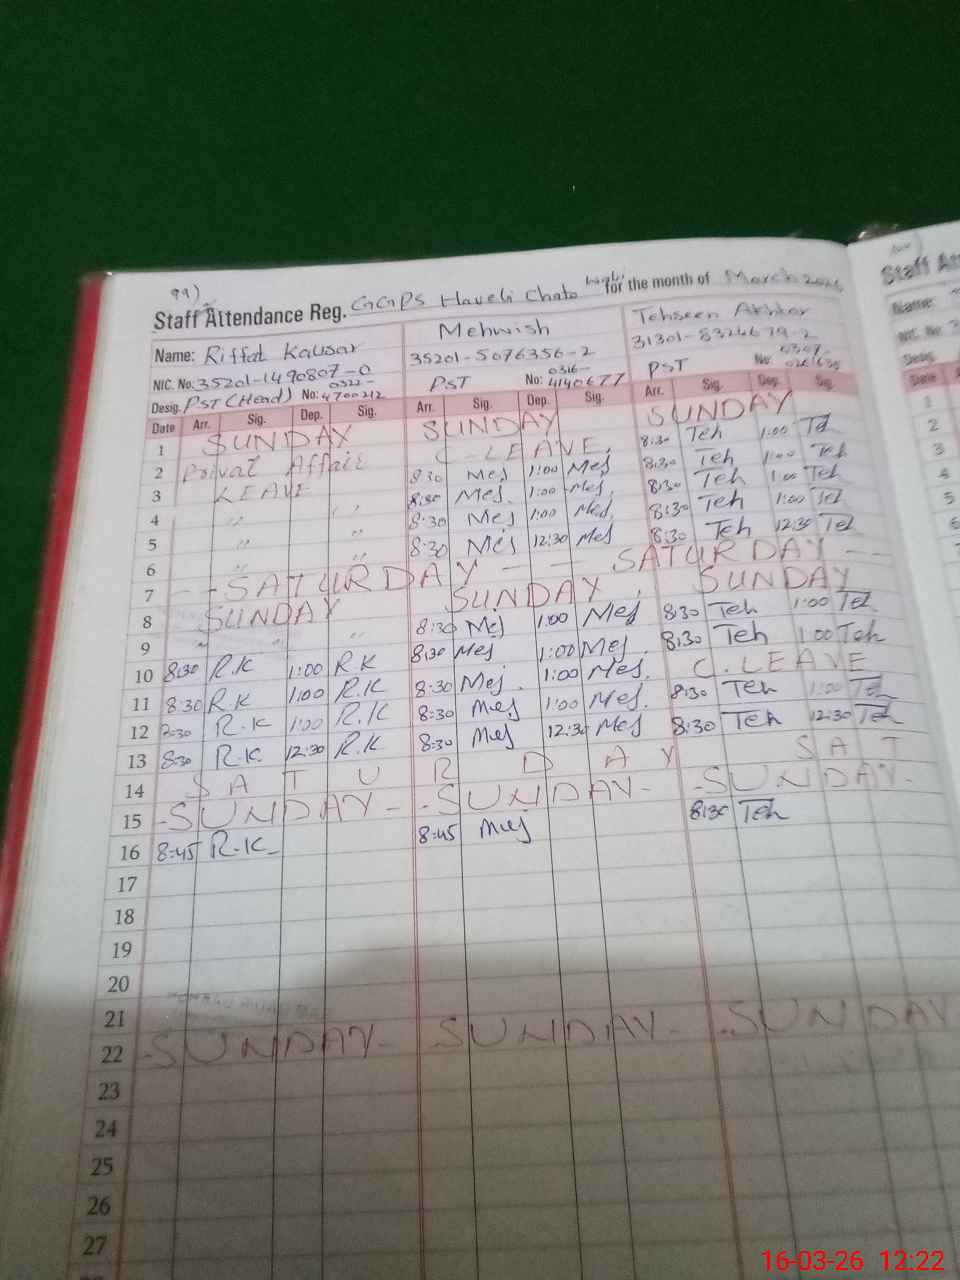 99)
Staff Attendance Reg. GGPS Haveli Chato for the month of March 2026
Name: Riffat Kausar Mehwish Tehseen Akhtar
NIC. No: 35201-1490807-0 35201-5076356-2 31301-8324679-2
Desig. PST (Head) No: 0322-4700212 PST No: 0316-4140677 PST No: 0307-
Date Arr. Sig. Dep. Sig. Arr. Sig. Dep. Sig. Arr. Sig. Dep. Sig.
1 SUNDAY SUNDAY SUNDAY
2 Privat Affair C-LEAVE. 8:30 Teh 1:00 Teh
3 LEAVE 8:30 Mes 1:00 Mes 8:30 Teh 1:00 Teh
4 〃 〃 8:30 Mes. 1:00 Mes, 8:30 Teh 1:00 Teh
5 〃 〃 8:30 Mes 1:00 Mes, 8:30 Teh 1:00 Teh
6 〃 〃 8:30 Mes 12:30 Mes 8:30 Teh 12:30 Teh
7 - - SATURDAY - - SATURDAY - -
8 SUNDAY SUNDAY SUNDAY
9 〃 〃 8:30 Mes 1:00 Mes 8:30 Teh 1:00 Teh
10 8:30 R.K 1:00 R.K 8:30 Mes 1:00 Mes. 8:30 Teh 1:00 Teh
11 8:30 R.K 1:00 R.K 8:30 Mes. 1:00 Mes. C. LEAVE
12 8:30 R.K 1:00 R.K 8:30 Mes 1:00 Mes. 8:30 Teh 1:00 Teh
13 8:30 R.K 12:30 R.K 8:30 Mes 12:30 Mes 8:30 Teh 12:30 Teh
14 SATURDAY SAT
15 -SUNDAY- -SUNDAY- -SUNDAY-
16 8:45 R.K_ 8:45 Mes 8:30 Teh
17
18
19
20
21
22 -SUNDAY- -SUNDAY- -SUNDAY
23
24
25
26
27
Staff At
Name:
NIC. No
Desig.
Date
1
2
3
4
5
6
16-03-26 12:22